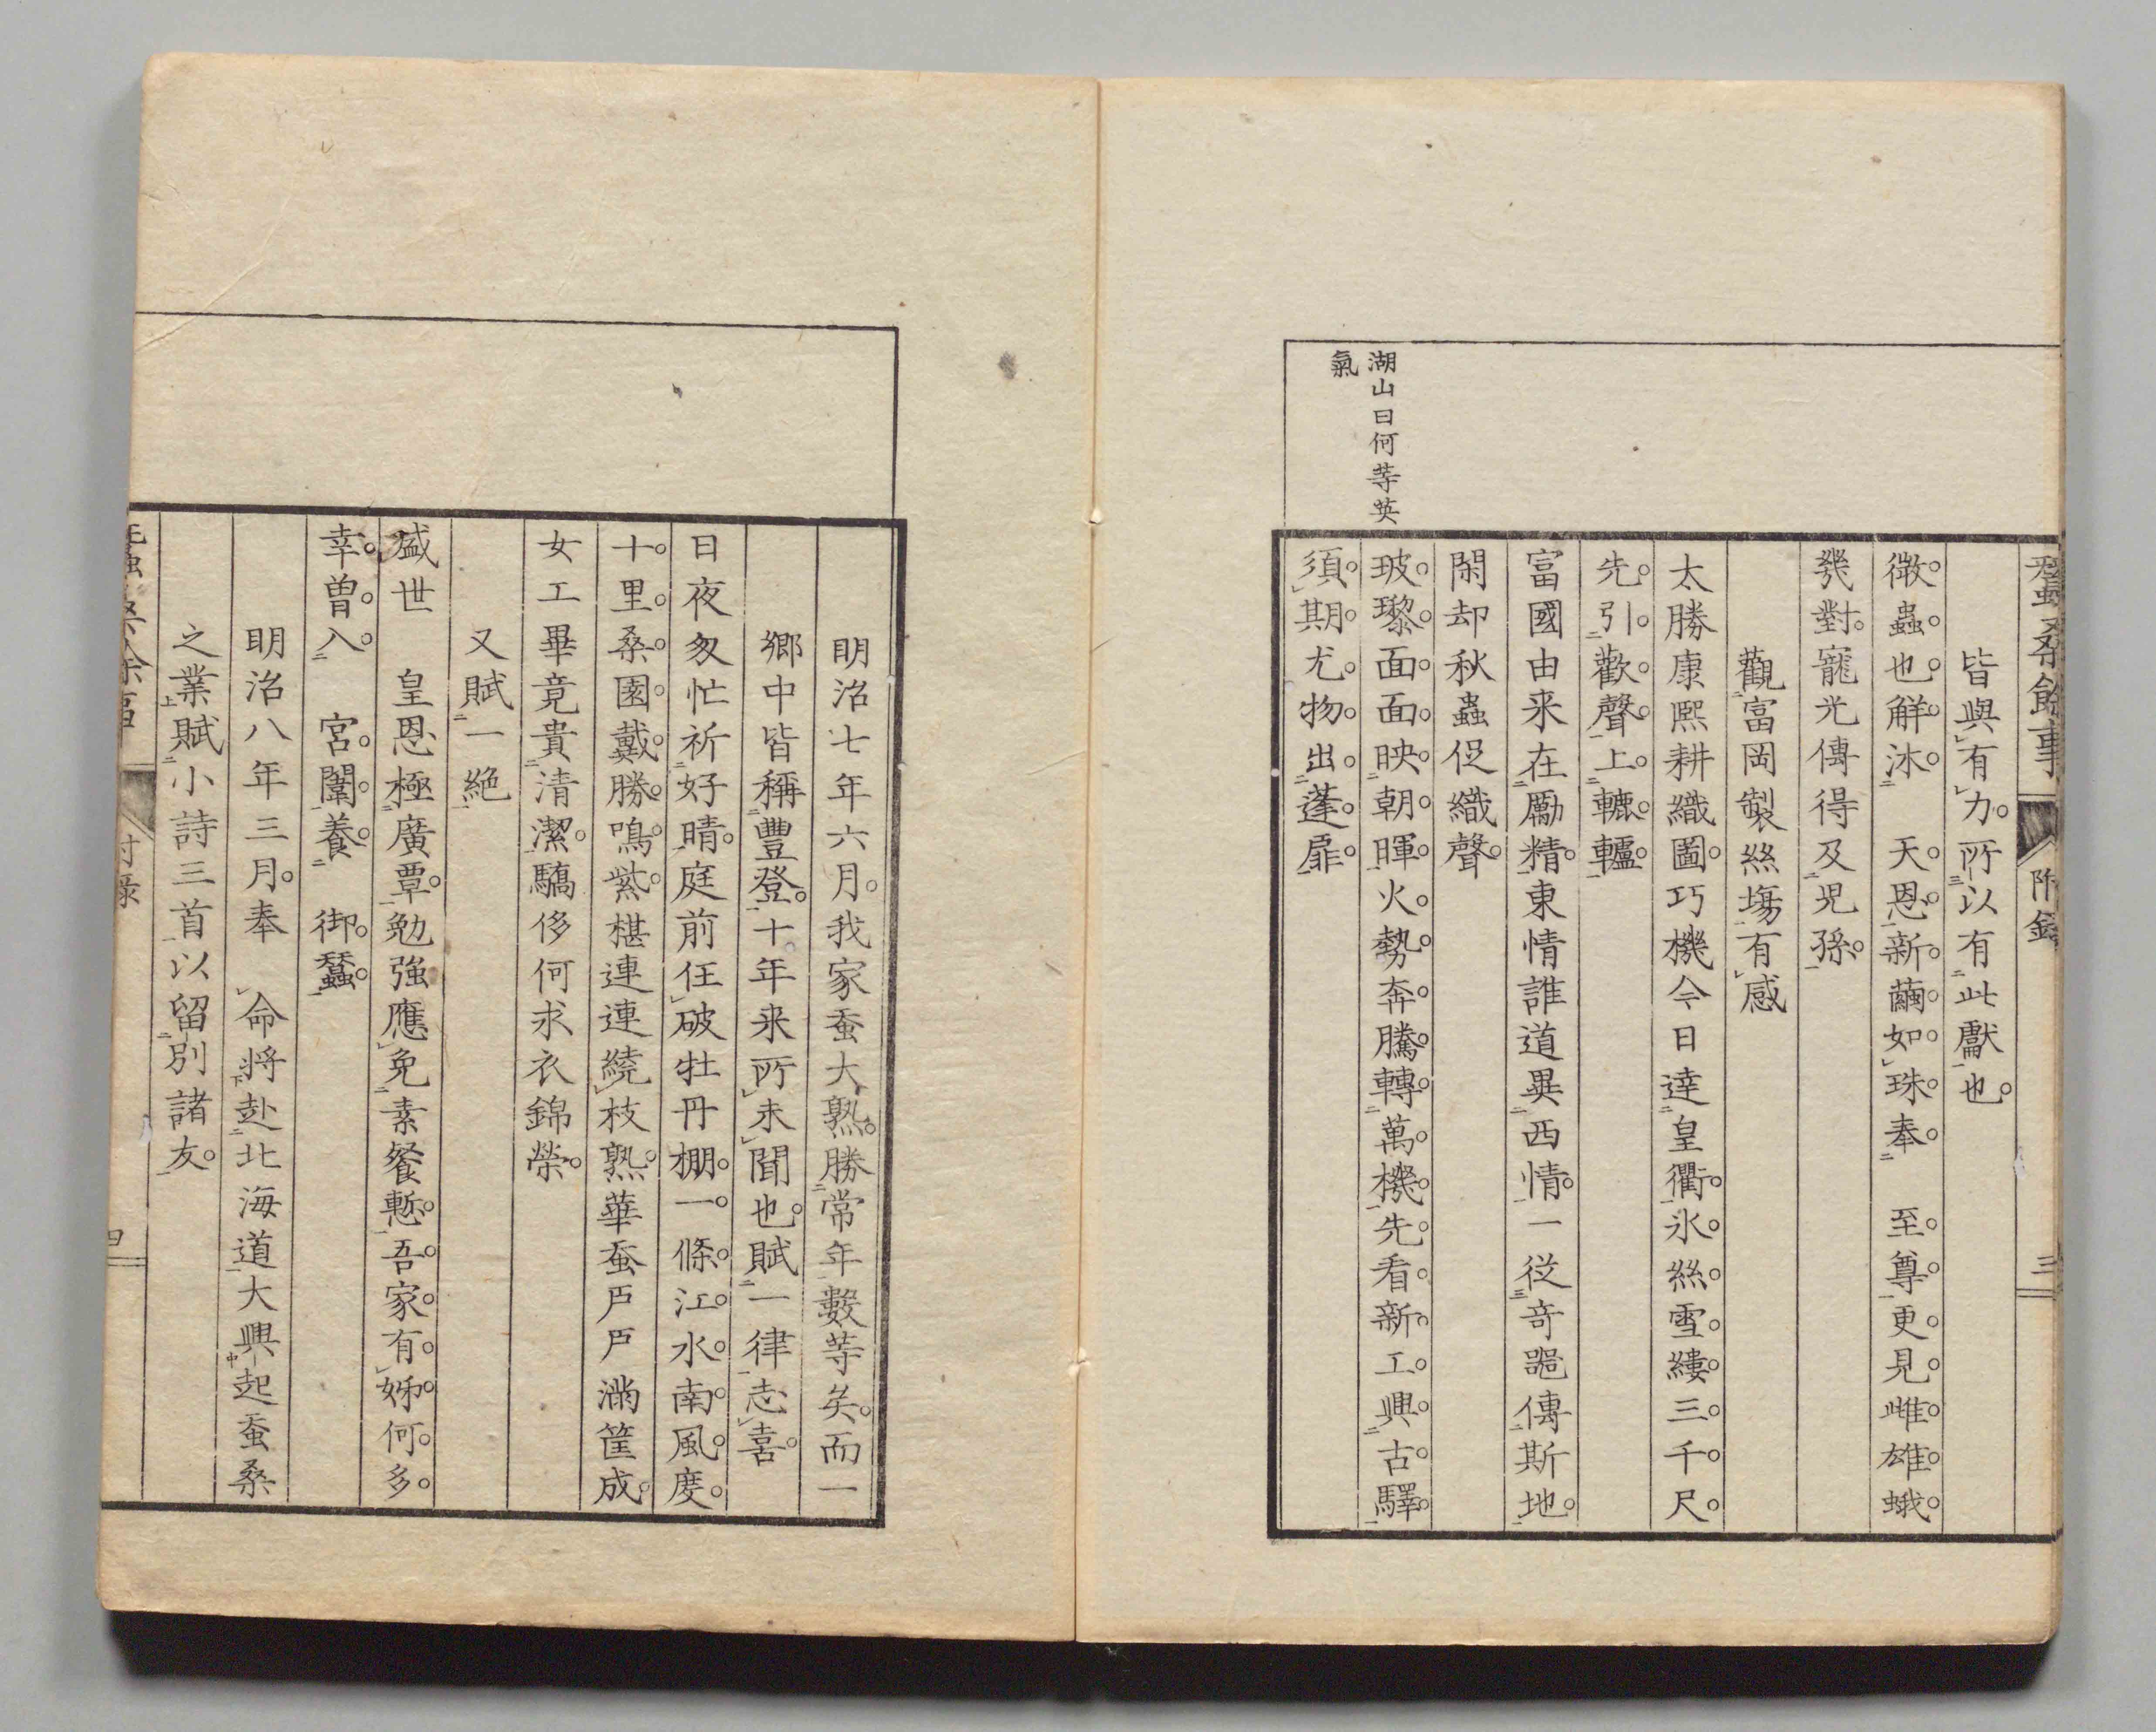 蠶桑餘事 附錄 三
皆與有力。所以有此獻也。
微蟲也解沐 天恩。新繭如珠奉 至尊。更見雌雄蛾
幾對。寵光傳得及兒孫。
觀富岡製絲場有感
太勝康熙耕織圖。巧機今日達皇衢。氷絲雪縷三千尺。
先引歡聲上轆轤。
富國由來在勵精。東情誰道異西情。一從奇器傳斯地。
閑却秋蟲促織聲。
玻瓈面面映朝暉。火勢奔騰轉萬機。先看新工興古驛。
須期尤物出蓬扉。
湖山曰何等英
氣
明治七年六月。我家蚕大熟。勝常年數等矣。而一
鄉中皆稱豐登。十年来所未聞也。賦一律志喜。
日夜匆忙祈好晴。庭前任破牡丹棚。一條江水南風度。
十里桑園戴勝鳴。紫椹連連繞枝熟。華蚕戶戶滿筐成。
女工畢竟貴清潔。驕侈何求衣錦榮。
又賦一絕
盛世 皇恩極廣覃。勉強應免素餐慙。吾家有姊何多
幸。曾入 宮闈養 御蠶。
明治八年三月。奉 命將赴北海道大興起蚕桑
之業賦小詩三首以留別諸友。
蠶桑餘事 附錄 四